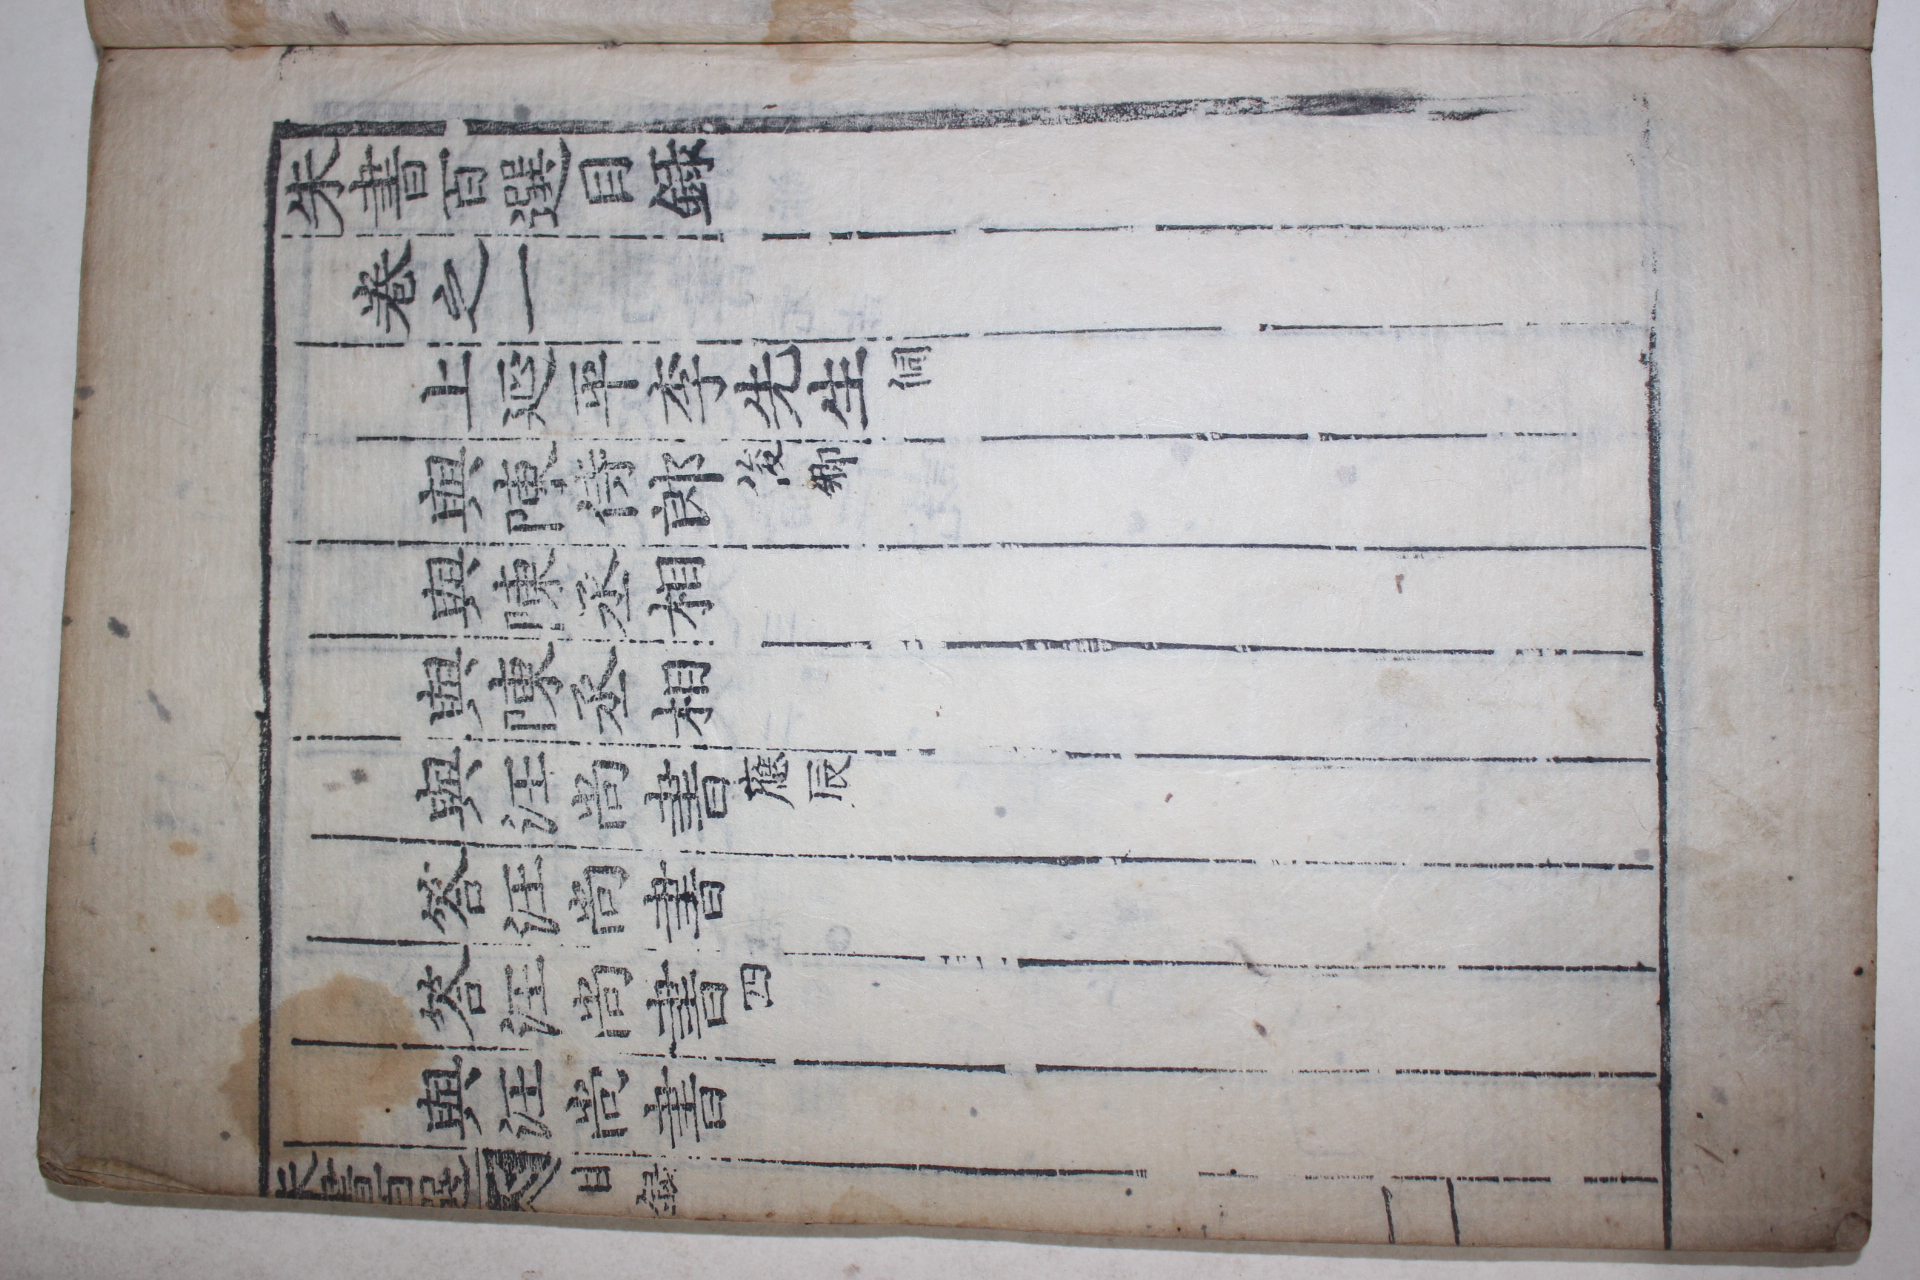 朱書百選目錄
卷之一
上延平李先生侗
與陳侍郎俊卿
與陳丞相
與陳丞相
與汪尙書應辰
答汪尙書
答汪尙書四
與汪尙書
朱書百選目錄